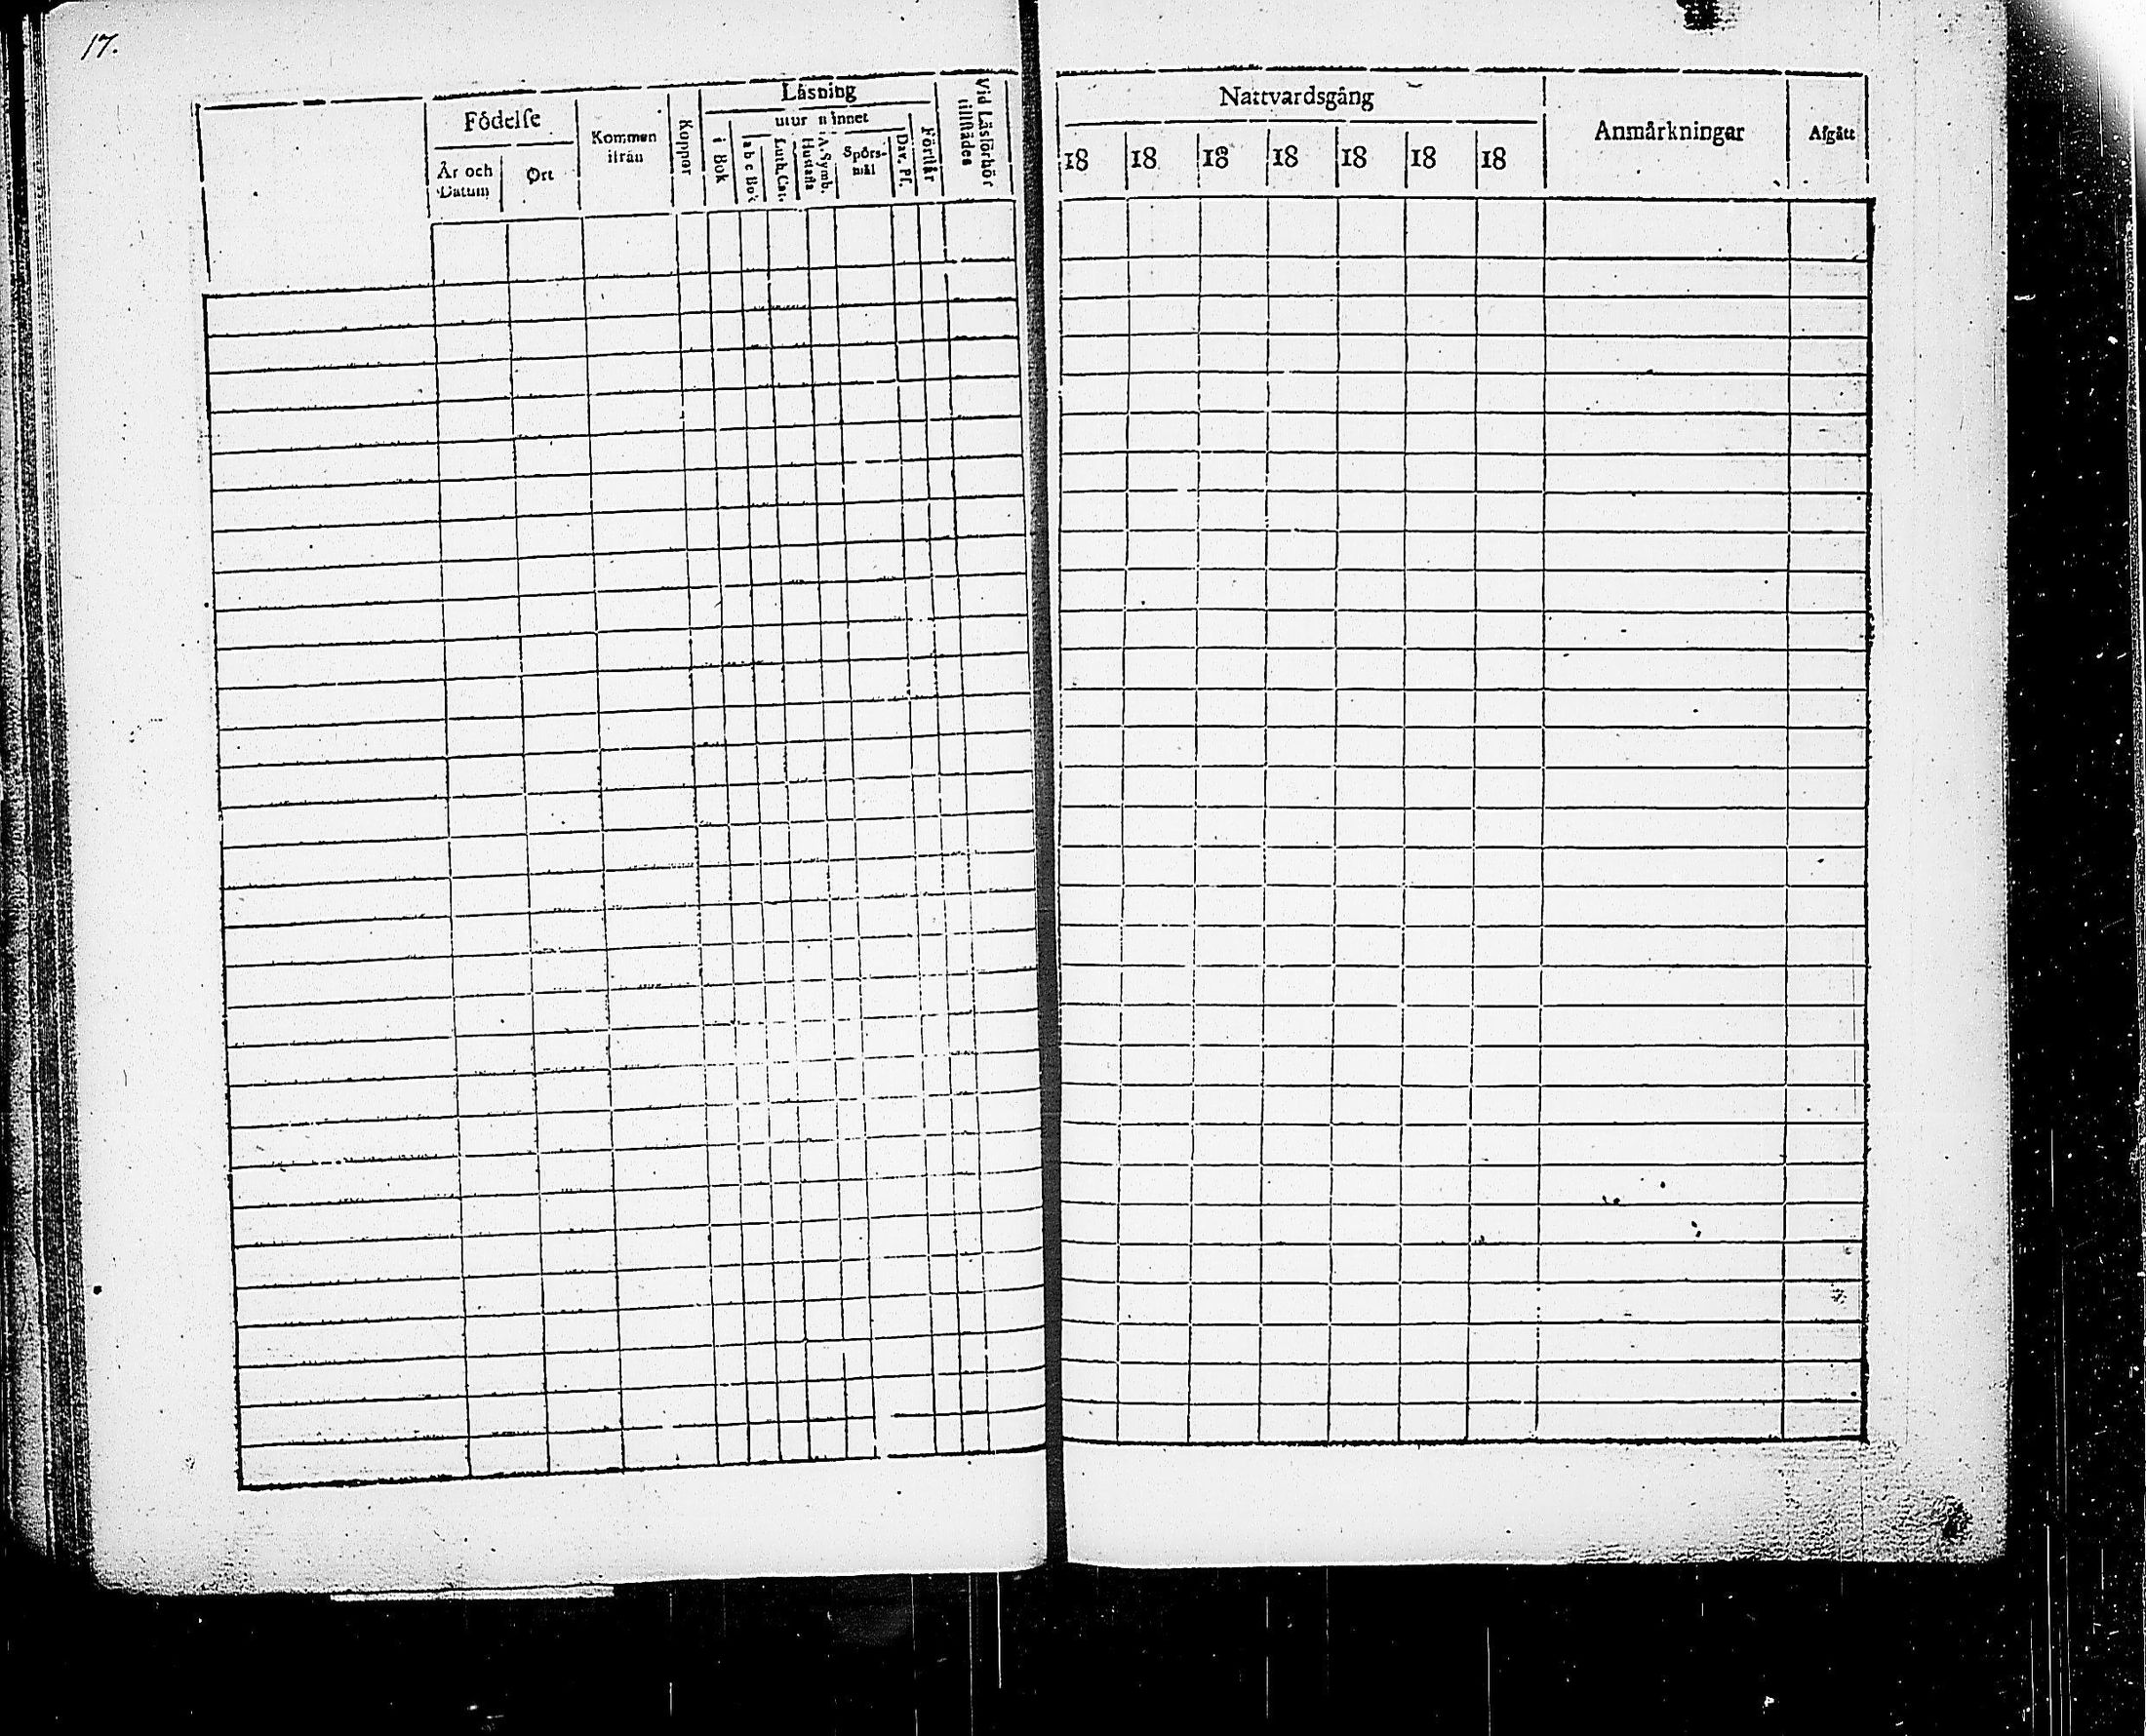 17.
Födelse
År och Datum
Ort
Kommen ifrån
Koppor
Läsning
utur minnet
i Bok
a b c Bok
Luth. Cat.
Hustafla
A. Symb.
Spörs-
mål
Dav. Ps.
Förstår
Vid Läsförhör
tillstädes
Nattvardsgång
18 18 18 18 18 18 18
Anmärkningar
Afgått